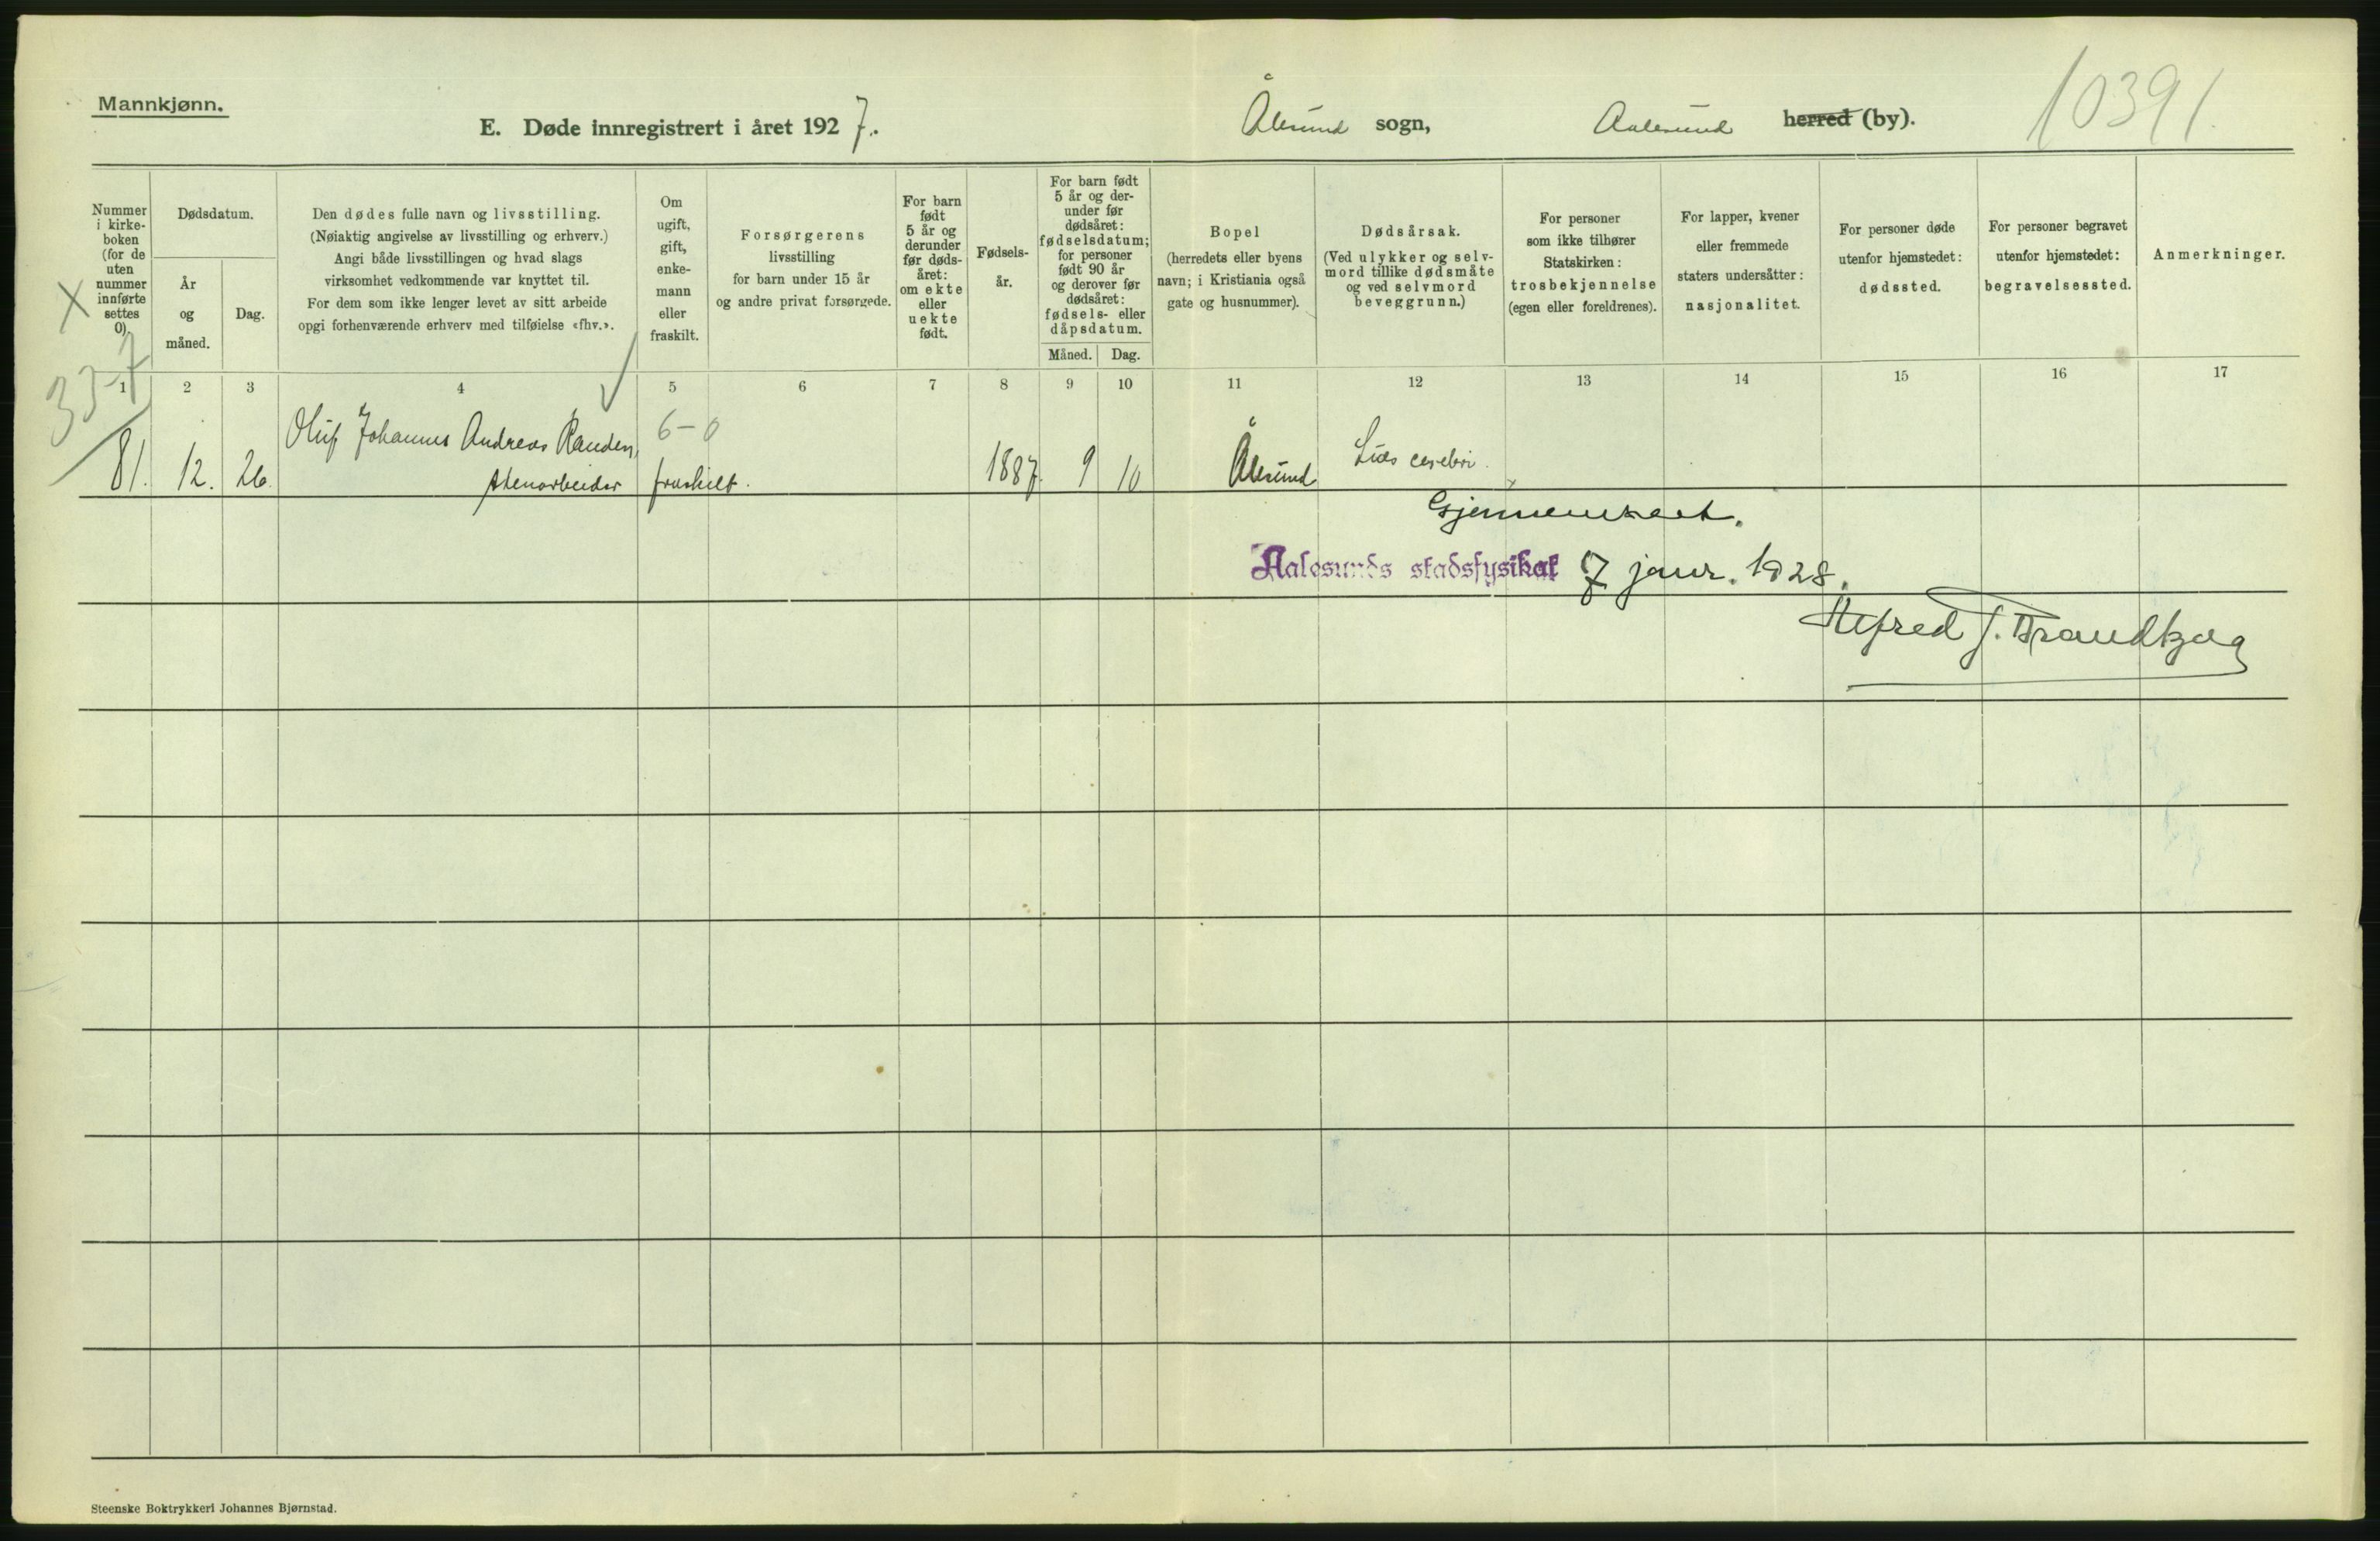 Mannkjønn.
E. Døde innregistrert i året 1927.
Ålesund sogn,
Aalesund herred (by).
10391.
Nummer
i kirke-
boken
(for de
uten
nummer
innførte
settes
0).
Dødsdatum.
År
og
måned.
Dag.
Den dødes fulle navn og livsstilling.
(Nøiaktig angivelse av livsstilling og erhverv.)
Angi både livsstillingen og hvad slags
virksomhet vedkommende var knyttet til.
For dem som ikke lenger levet av sitt arbeide
opgi forhenværende erhverv med tilføielse «fhv.».
Om
ugift,
gift,
enke-
mann
eller
fraskilt.
Forsørgerens
livsstilling
for barn under 15 år
og andre privat forsørgede.
For barn
født
5 år og
derunder
før døds-
året:
om ekte
eller
uekte
født.
Fødsels-
år.
For barn født
5 år og der-
under før
dødsåret:
fødselsdatum;
for personer
født 90 år
og derover før
dødsåret:
fødsels- eller
dåpsdatum.
Måned.
Dag.
Bopel
(herredets eller byens
navn; i Kristiania også
gate og husnummer).
Dødsårsak.
(Ved ulykker og selv-
mord tillike dødsmåte
og ved selvmord
beveggrunn.)
For personer
som ikke tilhører
Statskirken:
trosbekjennelse
(egen eller foreldrenes).
For lapper, kvener
eller fremmede
staters undersåtter:
nasjonalitet.
For personer døde
utenfor hjemstedet:
dødssted.
For personer begravet
utenfor hjemstedet:
begravelsessted.
Anmerkninger.
X
1 2 3 4 5 6 7 8 9 10 11 12 13 14 15 16 17
33-7
Oluf Johannes Andreas Randen,
6-0
81. 12. 26. stenarbeider fraskilt. 1887. 9 10 Ålesund Lues cerebri.
Gjennemseet.
Aalesunds stadsfysikat 7 janur. 1928.
Alfred J. Brandtzæg
Steenske Boktrykkeri Johannes Bjørnstad.